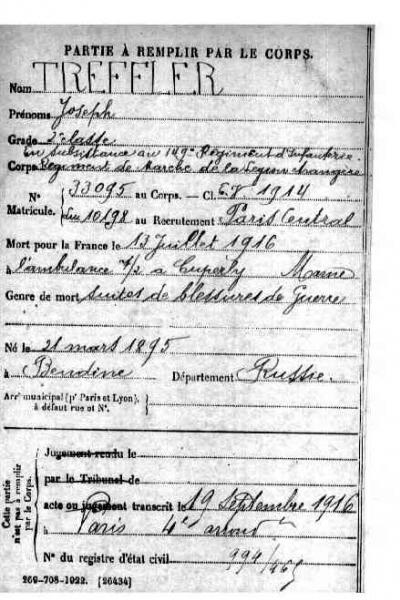 PARTIE À REMPLIR PAR LE CORPS.
Nom TREFFLER
Prénoms Joseph
Grade 2e classe
en subsistance au 149e Régiment d'Infanterie
Corps Régiment de Marche de la Légion étrangère
N° Matricule. 33095 au Corps. — Cl. 1914
10198 au Recrutement Paris Central
Mort pour la France le 13 Juillet 1916
à l'ambulance à Cuperly Marne
Genre de mort suites de blessures de Guerre
Né le 21 mars 1895
à Bendine Département Russie.
Arrt municipal (pr Paris et Lyon), à défaut rue et N°.
Cette partie n'est pas à remplir par le Corps.
Jugement rendu le
par le Tribunal de
acte ou jugement transcrit le 19 Septembre 1916
à Paris 4e arrondt
N° du registre d'état civil
269-708-1922. [26434]